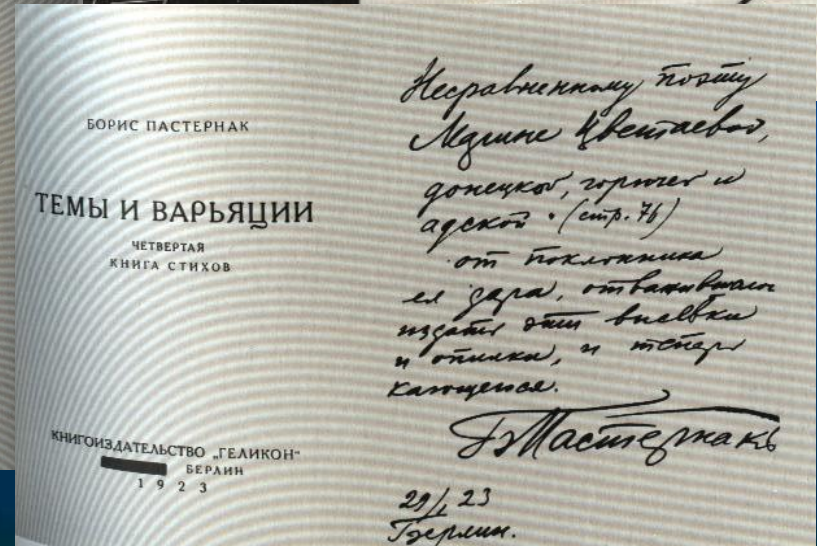 БОРИС ПАСТЕРНАК
ТЕМЫ И ВАРЬЯЦИИ
ЧЕТВЕРТАЯ
КНИГА СТИХОВ
КНИГОИЗДАТЕЛЬСТВО „ГЕЛИКОН“
БЕРЛИН
1 9 2 3
Несравненному поэту
Марине Цветаевой,
донецкой, горючей и
адской • (стр. 76)
от поклонника
ея дара, отважившагося
издать эти высевки
и опилки, и теперь
кающегося.
Б Пастернакъ
29/I 23
Берлин.